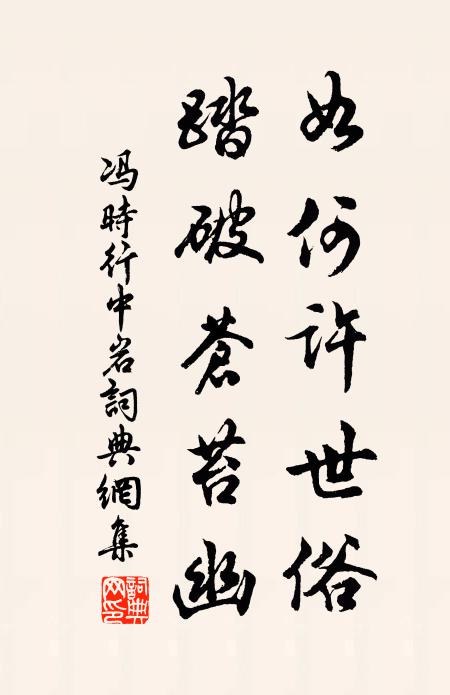 如何許世俗
踏破蒼苔幽
冯時行中岩詞典網集
詞典网印